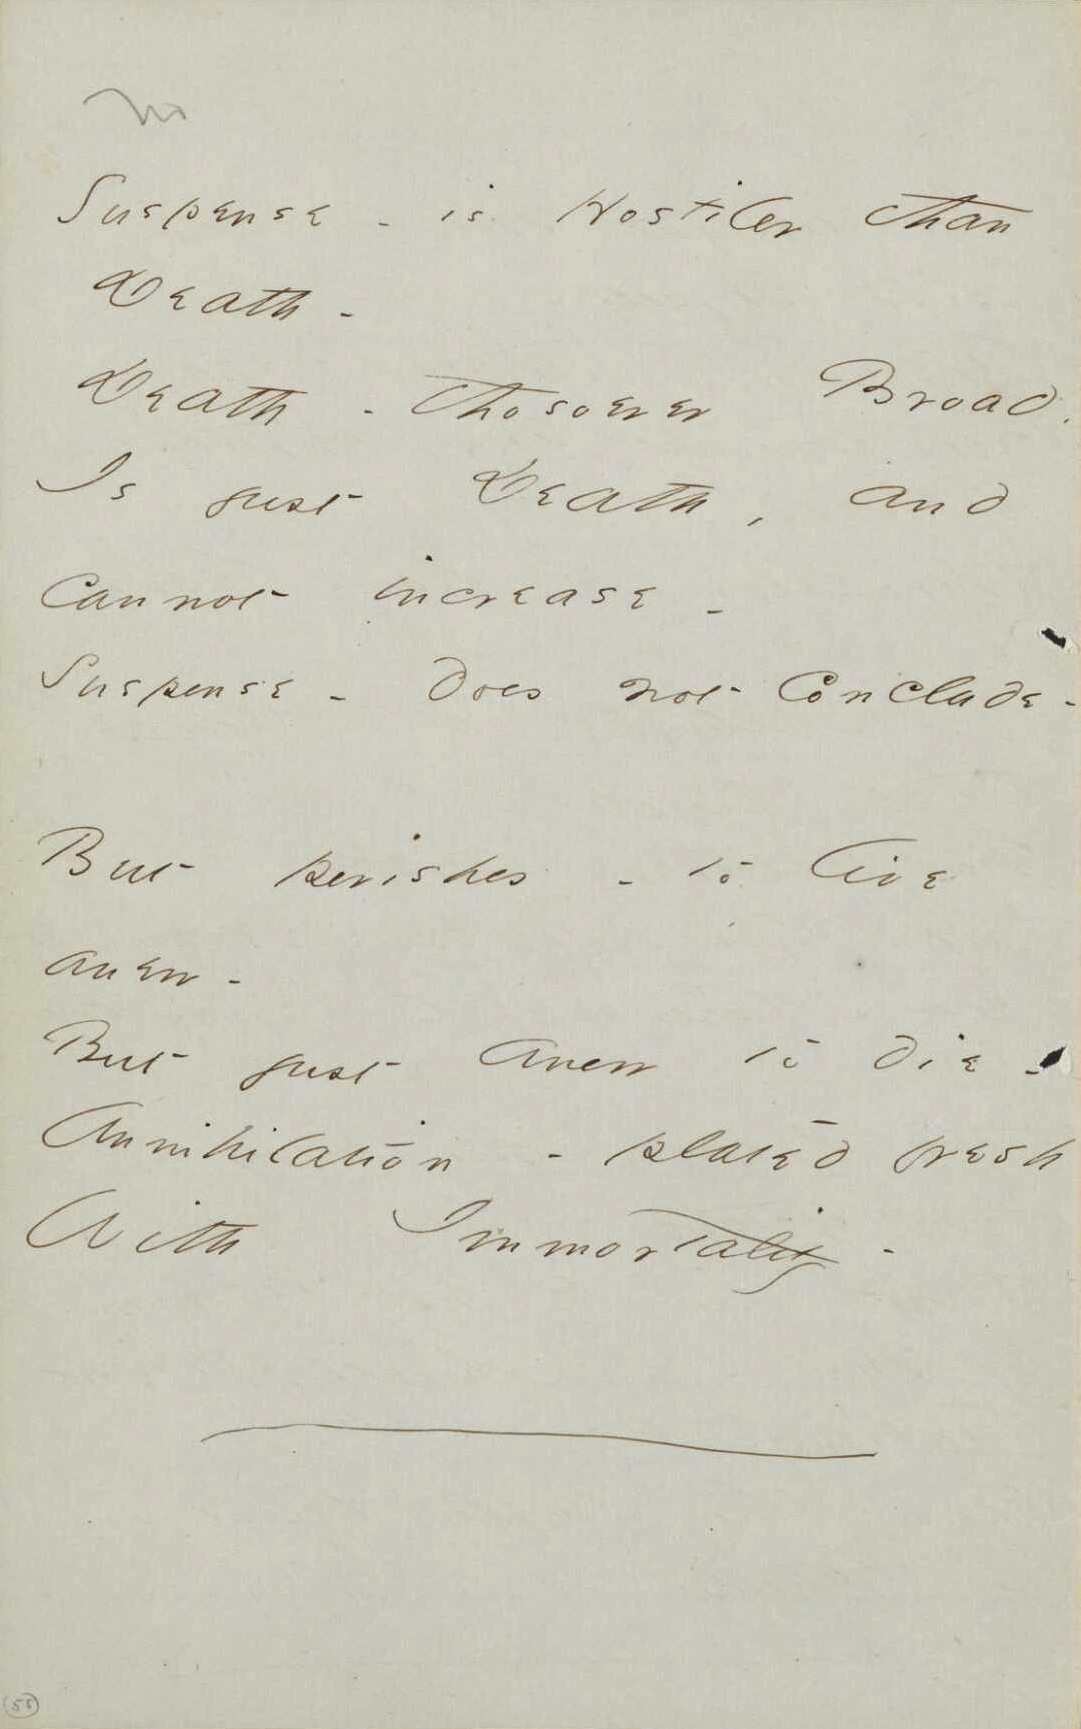 Suspense - is Hostiler than
Death -
Death - thosoever Broad.
Is just Death, and
Cannot increase -
Suspense - does not Conclude -
But perishes - to live
anew -
But just Anew to die -
Annihilation - plated fresh
With Immortality -
55